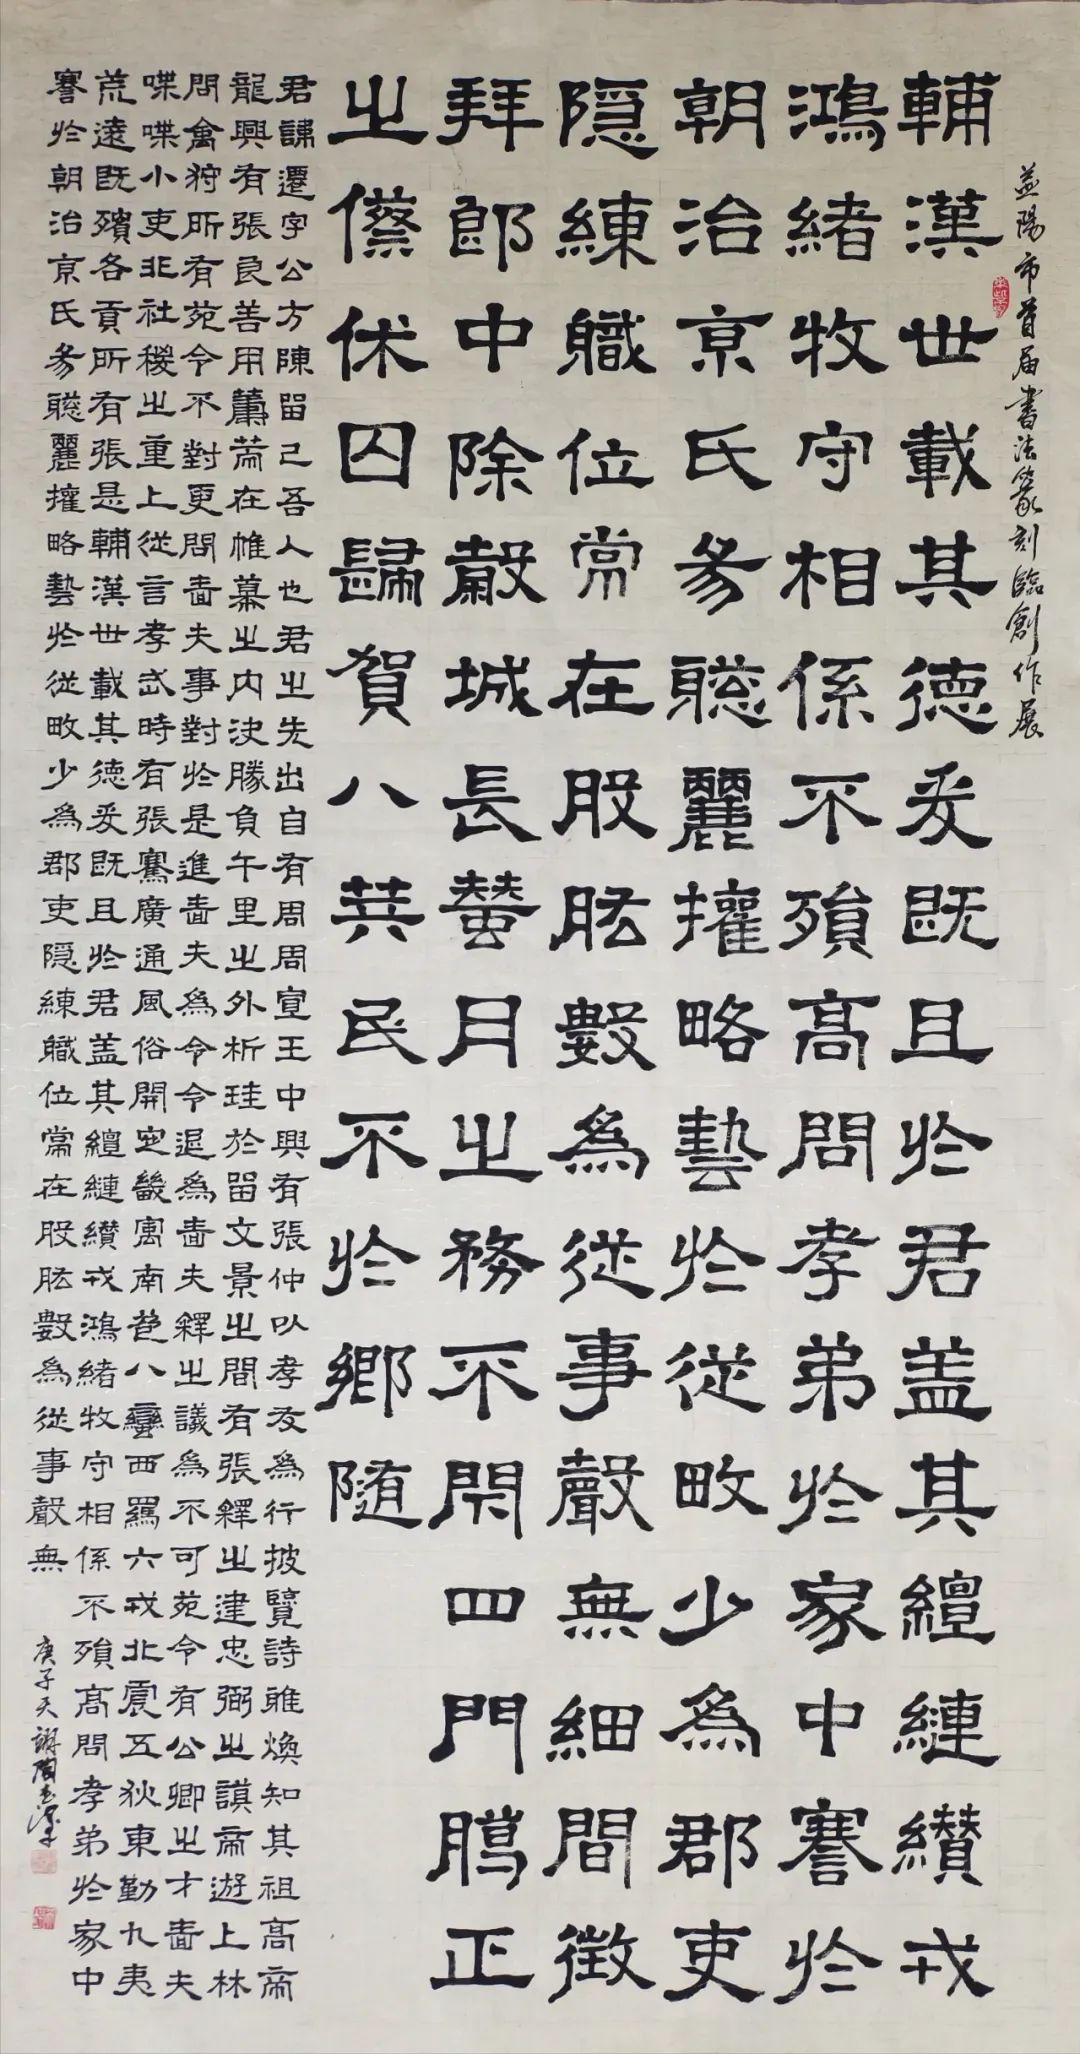 益陽市首届書法篆刻臨創作展
輔漢世載其德爰既且於君盖其繵縺纘戎
鴻緒牧守相係不殞高問孝弟於家中謇於
朝治京氏易聰麗權略藝於從畋少為郡吏
隱練職位常在股肱數為從事聲無細間徵
拜郎中除穀城長蠶月之務不閉四門臘正
之傺休囚歸賀八莫民不於鄉隨
君諱遷字公方陳留己吾人也君之先出自有周周宣王中興有張仲以孝友為行披覽詩雅煥知其祖高帝
龍興有張良善用籌策在帷幕之內決勝負千里之外析珪於留文景之間有張釋之建忠弼之謨帝遊上林
問禽狩所有苑令不對更問嗇夫事對於是進嗇夫為令令退為嗇夫釋之議為不可苑令有公卿之才嗇夫
喋喋小吏非社稷之重上從言孝武時有張騫廣通風俗開定畿寓南苞八蠻西羈六戎北震五狄東勤九夷
荒遠既殯各貢所有張是輔漢世載其德爰既且於君盖其繵縺纘戎鴻緒牧守相係不殞高問孝弟於家中
謇於朝治京氏易聰麗權略藝於從畋少為郡吏隱練職位常在股肱數為從事聲無
庚子